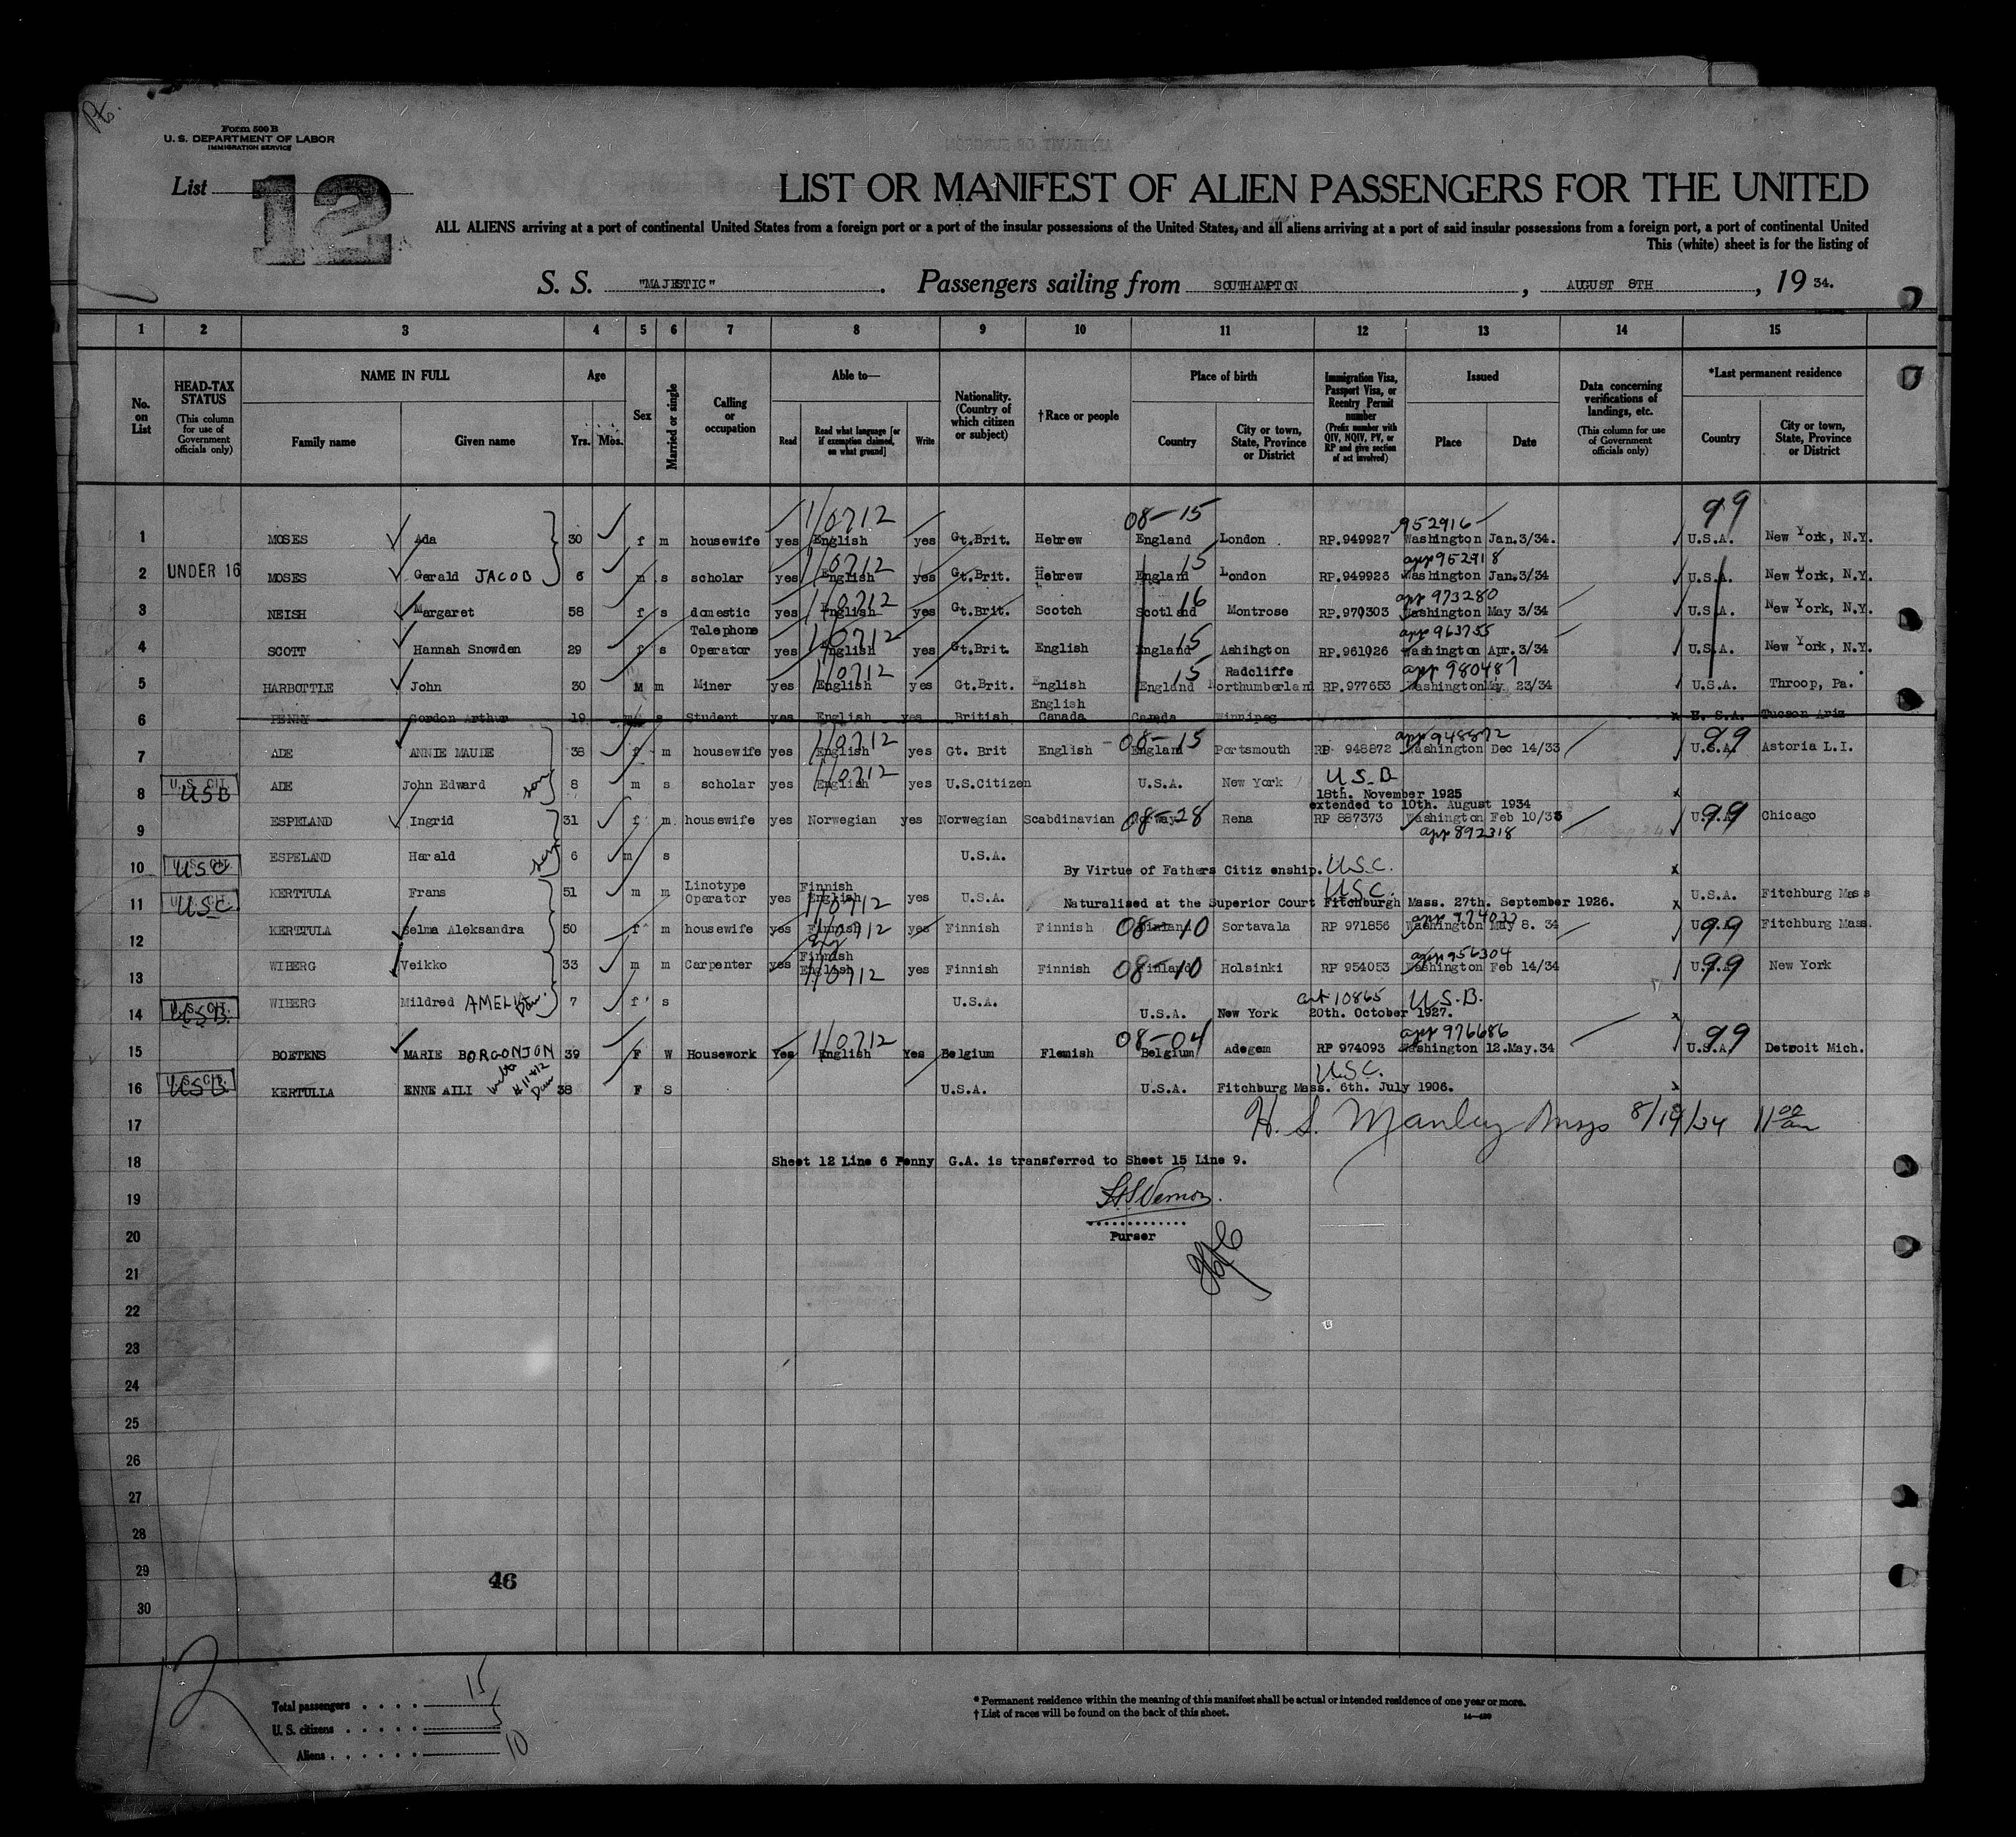 Form 500 B
U. S. DEPARTMENT OF LABOR
IMMIGRATION SERVICE
List 12
LIST OR MANIFEST OF ALIEN PASSENGERS FOR THE UNITED
ALL ALIENS arriving at a port of continental United States from a foreign port or a port of the insular possessions of the United States, and all aliens arriving at a port of said insular possessions from a foreign port, a port of continental United
This (white) sheet is for the listing of
S. S. "MAJESTIC". Passengers sailing from SOUTHAMPTON, AUGUST 8TH, 19 34.
1 2 3 4 5 6 7 8 9 10 11 12 13 14 15
No. on List
HEAD-TAX STATUS (This column for use of Government officials only)
NAME IN FULL
Family name Given name
Age
Yrs. Mos.
Sex
Married or single
Calling or occupation
Able to—
Read Read what language [or if exemption claimed, on what ground] Write
Nationality. (Country of which citizen or subject)
†Race or people
Place of birth
Country City or town, State, Province or District
Immigration Visa, Passport Visa, or Reentry Permit number (Prefix number with QIV, NQIV, PV, or RP and give section of act involved)
Issued
Place Date
Data concerning verifications of landings, etc. (This column for use of Government officials only)
*Last permanent residence
Country City or town, State, Province or District
110712 08-15 952916 99
1 MOSES Ada 30 f m housewife yes English yes Gt.Brit. Hebrew England London RP.949927 Washington Jan.3/34. U.S.A. New York, N.Y.
110712 15 app 952918
2 UNDER 16 MOSES Gerald JACOB 6 m s scholar yes English yes Gt.Brit. Hebrew England London RP.949928 Washington Jan.3/34 U.S.A. New York, N.Y.
110712 16 app 973280
3 NEISH Margaret 58 f s domestic yes English yes Gt.Brit. Scotch Scotland Montrose RP.970303 Washington May 3/34 U.S.A. New York, N.Y.
110712 15 app 963755
4 SCOTT Hannah Snowden 29 f s Telephone Operator yes English yes Gt.Brit. English England Ashington RP.961026 Washington Apr.3/34 U.S.A. New York, N.Y.
110712 15 app 980487
5 HARBOTTLE John 30 M m Miner yes English yes Gt.Brit. English England Radcliffe Northumberlan RP.977653 Washington May 23/34 U.S.A. Throop, Pa.
6 PENNY Gordon Arthur 19 s Student yes English yes British English Canada Canada Winnipeg U.S.A. Tucson Ariz
110712 08-15 app 948872 99
7 ADE ANNIE MAUDE 38 f m housewife yes English yes Gt. Brit English England Portsmouth RP 948872 Washington Dec 14/33 U.S.A. Astoria L.I.
8 U.S. CIT. USB ADE John Edward son 8 m s scholar yes English 110712 yes U.S.Citizen U.S.A. New York U.S.B 18th. November 1925
extended to 10th. August 1934
9 ESPELAND Ingrid 31 f m housewife yes Norwegian yes Norwegian Scabdinavian Norway 08-28 Rena RP 887373 Washington Feb 10/33 app 892318 U.S.A. 99 Chicago
10 U.S. CIT. USC ESPELAND Harald son 6 m s U.S.A. By Virtue of Fathers Citiz enship. U.S.C.
11 U.S. CIT. USC KERTTULA Frans 51 m m Linotype Operator yes Finnish English 110712 yes U.S.A. Naturalised at the Superior Court Fitchburgh Mass. 27th. September 1926. U.S.C. U.S.A. Fitchburg Mass
12 KERTTULA Selma Aleksandra 50 f m housewife yes Finnish 110712 yes Finnish Finnish Finland 08-10 Sortavala RP 971856 Washington May 8. 34 U.S.A. 99 Fitchburg Mass.
13 WIBERG Veikko 33 m m Carpenter yes Finnish English 110712 yes Finnish Finnish Finland 08-10 Holsinki RP 954053 app 956304 Washington Feb 14/34 U.S.A. 99 New York
14 U.S. CIT. USB. WIBERG Mildred AMELIA Dau. 7 f s U.S.A. U.S.A. New York 20th. October 1927. cert 10865 U.S.B.
110712 08-04 app 976686 99
15 BOETENS MARIE BORGONJON 39 F W Housework Yes English Yes Belgium Flemish Belgium Adegem RP 974093 Washington 12.May.34 U.S.A. Detroit Mich.
16 U.S. CIT. USB KERTULLA ENNE AILI Dau 38 F S U.S.A. U.S.A. Fitchburg Mass. 6th. July 1906. U.S.C.
17 H. S. Manley Insp 8/19/34 11 00 am
18 Sheet 12 Line 6 Penny G.A. is transferred to Sheet 15 Line 9.
19
20 Purser
21
22
23
24
25
26
27
28
29 46
30
12
Total passengers 15
U. S. citizens 5
Aliens 10
* Permanent residence within the meaning of this manifest shall be actual or intended residence of one year or more.
† List of races will be found on the back of this sheet.